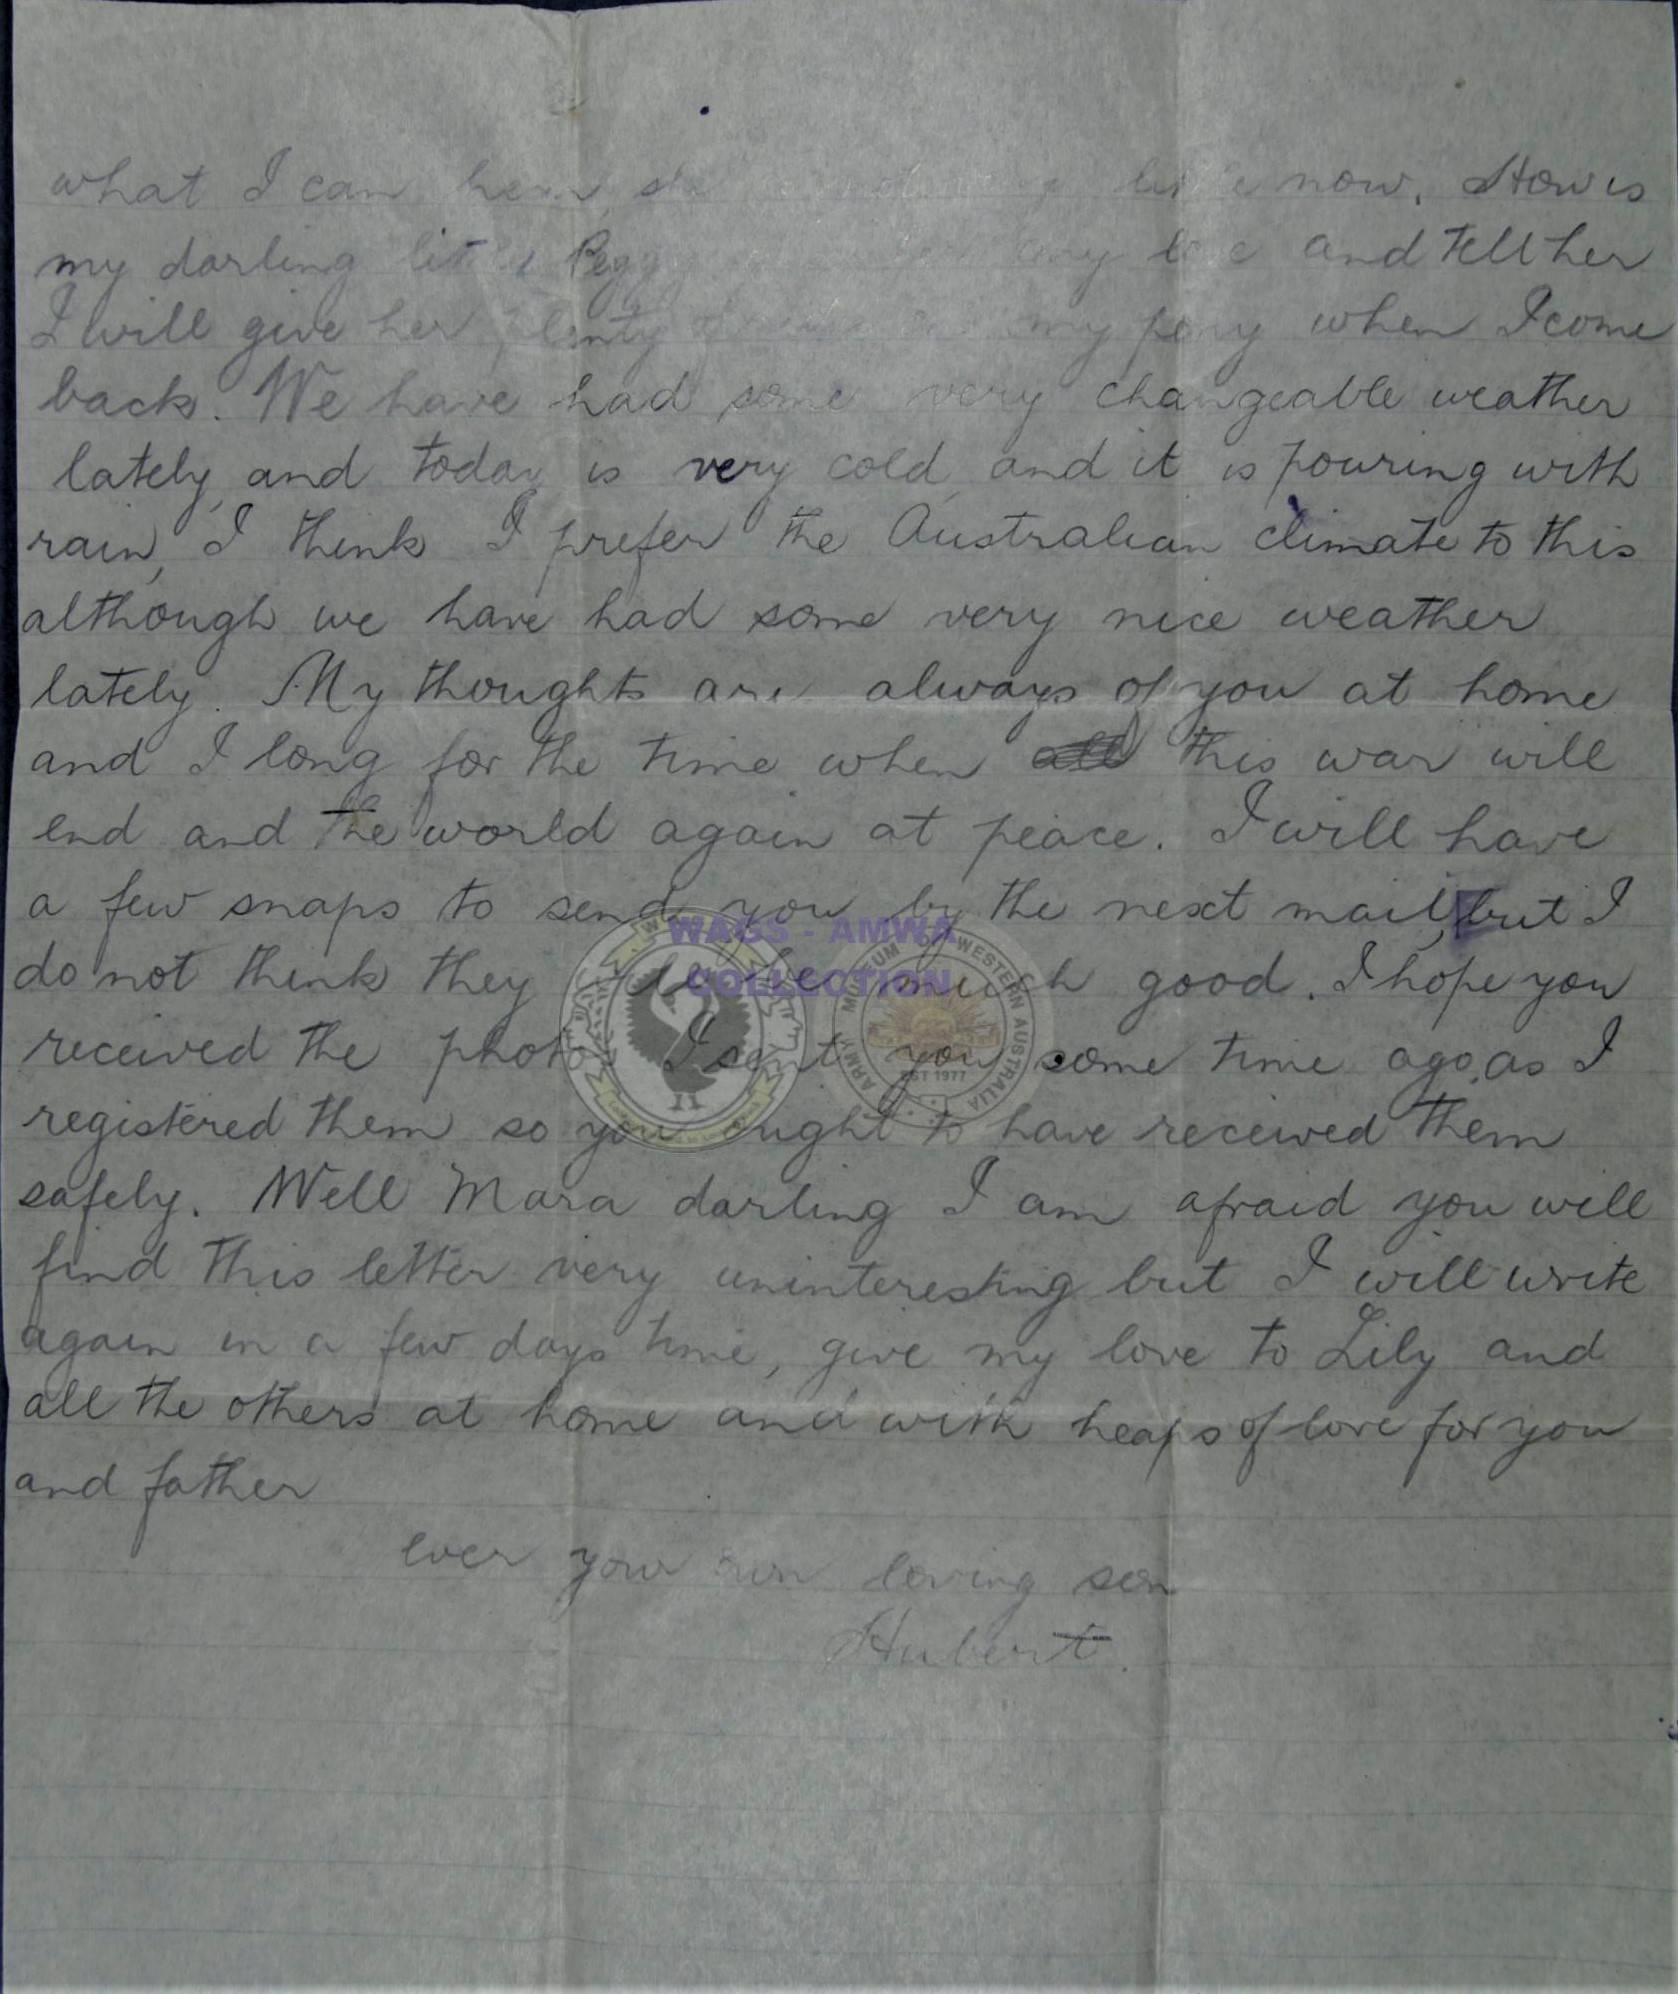 what I can hear she now. How is
my darling little Peggy my love and tell her
I will give her plenty my pony when I come
back. We have had some very changeable weather
lately, and today is very cold, and it is pouring with
rain, I think I prefer the Australian climate to this
although we have had some very nice weather
lately. My thoughts are always of you at home
and I long for the time when this war will
end and the world again at peace. I will have
a few snaps to send you by the next mail, but I
do not think they will be much good. I hope you
received the photos I sent you some time ago, as I
registered them so you ought to have received them
safely. Well Mara darling I am afraid you will
find this letter very uninteresting but I will write
again in a few days time, give my love to Lily and
all the others at home and with heaps of love for you
and father
ever your own loving son
Hubert.
WAGS - AMWA
COLLECTION
ARMY MUSEUM OF WESTERN AUSTRALIA
EST 1977